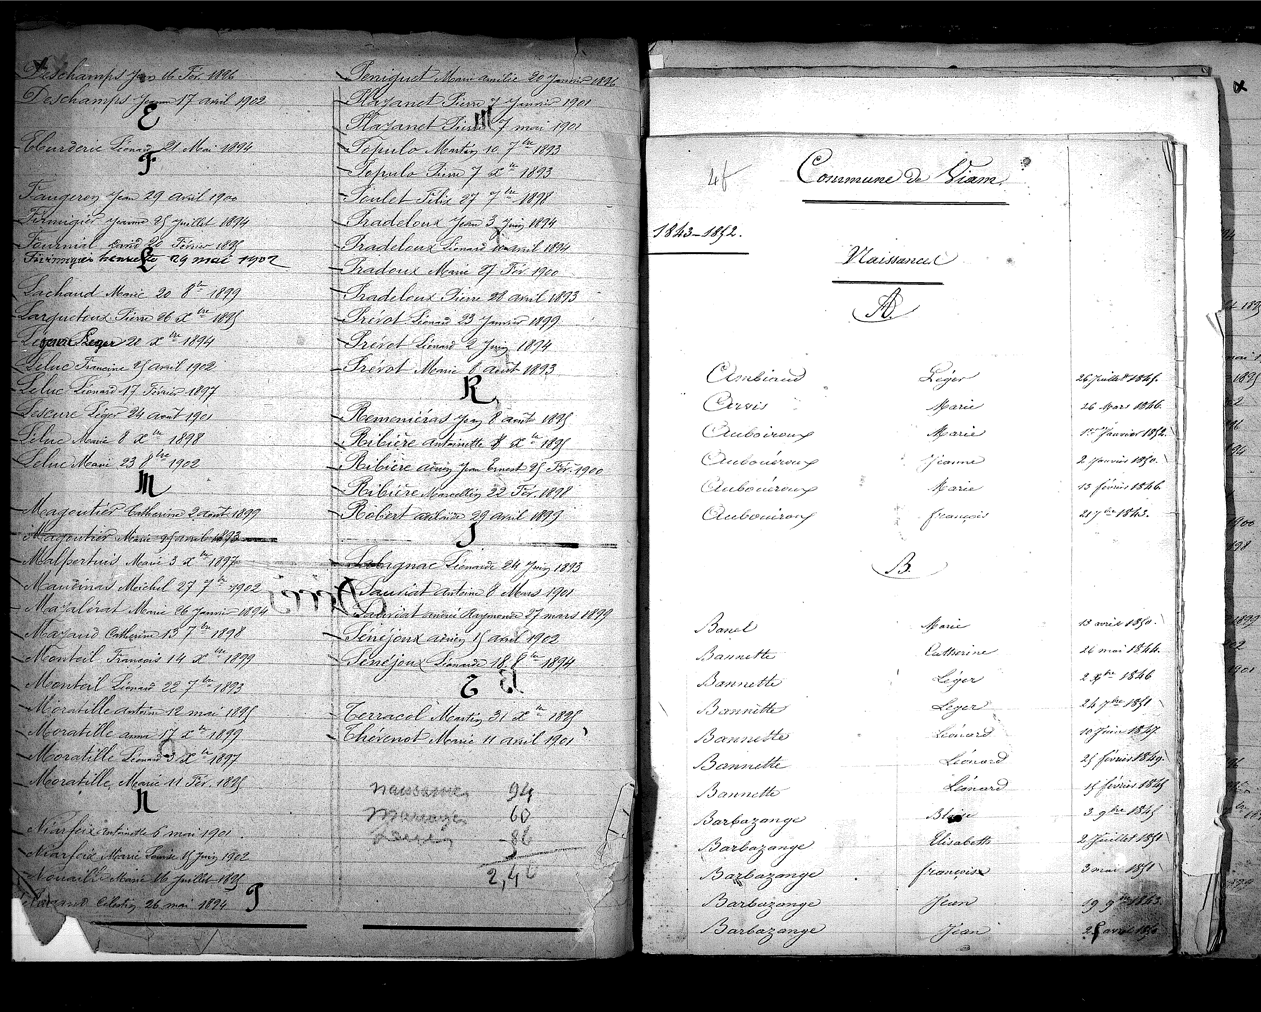 Deschamps Jean 16 Fév. 1896
Deschamps Jeanne 17 avril 1902
E
Eburderie Léonard 21 Mai 1894
F
Faugeron Jean 29 avril 1900
Firmigier Jeanne 25 Juillet 1894
Fournial 20 Février 1895
Firmigier henriette 29 mai 1902
L
Lachaud Marie 20 8bre 1899
Larquetoux Pierre 26 Xbre 1895
Leger 20 Xbre 1894
Leluc Francine 25 avril 1902
Leluc Léonard 17 Février 1897
Lescure Léger 24 août 1901
Leluc Marie 8 Xbre 1898
Leluc Marie 23 8bre 1902
M
Magoutier Catherine 2 août 1899
Magoutier Marie avril 1893
Malpertuis Marie 3 Xbre 1897
Maudinas Michel 27 7bre 1902
Mazalérat Marie 26 Janvier 1894
Mazaud Catherine 13 7bre 1898
Monteil François 14 Xbre 1899
Monteil Léonard 22 7bre 1893
Moratille Antoine 12 mai 1895
Moratille anna 17 Xbre 1899
Moratille Léonard 3 Xbre 1897
Moratille Marie 11 Fév. 1895
N
Niarfeix Antoinette 6 mai 1901
Niarfeix Marie Louise 15 Juin 1902
Nouaille Marie 16 Juillet 1895
Célestin 26 mai 1894
P
Peniguet Marie amélie 20 Janvier 1896
Plazanet Pierre 7 Janvier 1901
Plazanet Pierre 7 mai 1901
Populo Martin 10 7bre 1893
Populo Pierre 7 Xbre 1893
Poulet Félix 27 7bre 1898
Pradeloux Jean 3 Juin 1894
Pradeloux Léonard 10 avril 1894
Pradoux Marie 27 Fév. 1900
Pradeloux Pierre 28 avril 1893
Prévot Léonard 23 Janvier 1899
Prévot Léonard 2 Juin 1894
Prévot Marie 8 août 1893
R
Remeniéras Jean 8 août 1895
Ribière Antoinette 8 Xbre 1895
Ribière adrien Jean Ernest 25 Fév. 1900
Ribière Marcellin 22 Fév. 1898
Robert 29 avril 1899
S
Lubignac Léonarde 24 Juin 1893
Sauviat Antoine 8 Mars 1901
Sauviat andré Raymond 27 mars 1899
Sénéjoux adrien 15 avril 1902
Sénéjoux Léonarde 18 8bre 1894
T
Terracol Martin 31 Xbre 1895
Thévenot Marie 11 avril 1901
naissances 94
Mariages 60
Décès 86
2,40
Commune de Viam.
1843-1852.
Naissances
A
Ambiaud Léger 26 Juillet 1845.
Arvis Marie 26 Mars 1846.
Auboiroux Marie 1er Janvier 1852.
Aubouéroux Jeanne 2 Janvier 1850.
Aubouéroux Marie 13 février 1846.
Aubouiroux françois 21 7bre 1843.
B
Banel Marie 13 avril 1850.
Bannette Catherine 26 mai 1844.
Bannette Léger 2 8bre 1846
Bannette Léger 24 7bre 1851
Bannette Léonard 10 Juin 1847.
Bannette Léonard 25 février 1849.
Bannette Léonard 15 février 1845
Barbazange Blaise 3 9bre 1845
Barbazange Elisabeth 2 Juillet 1851
Barbazange françoise 3 mai 1851
Barbazange Jean 19 9bre 1843.
Barbazange Jean 25 avril 1850